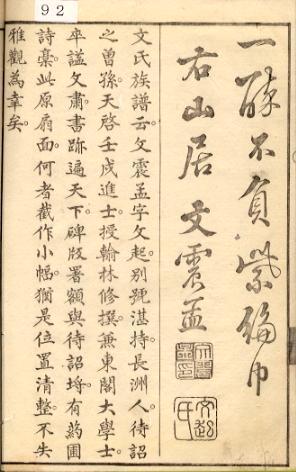 92
一醉不負紫綸巾
右山居 文震孟
文氏族譜云文震孟字文起別號湛持長洲人待詔
之曾孫天啓壬戌進士授翰林修撰兼東閣大學士
卒謚文肅書跡遍天下碑版署額與待詔埒有葯圃
詩稾此原扇面何者截作小幅猶是位置清整不失
雅觀為幸矣